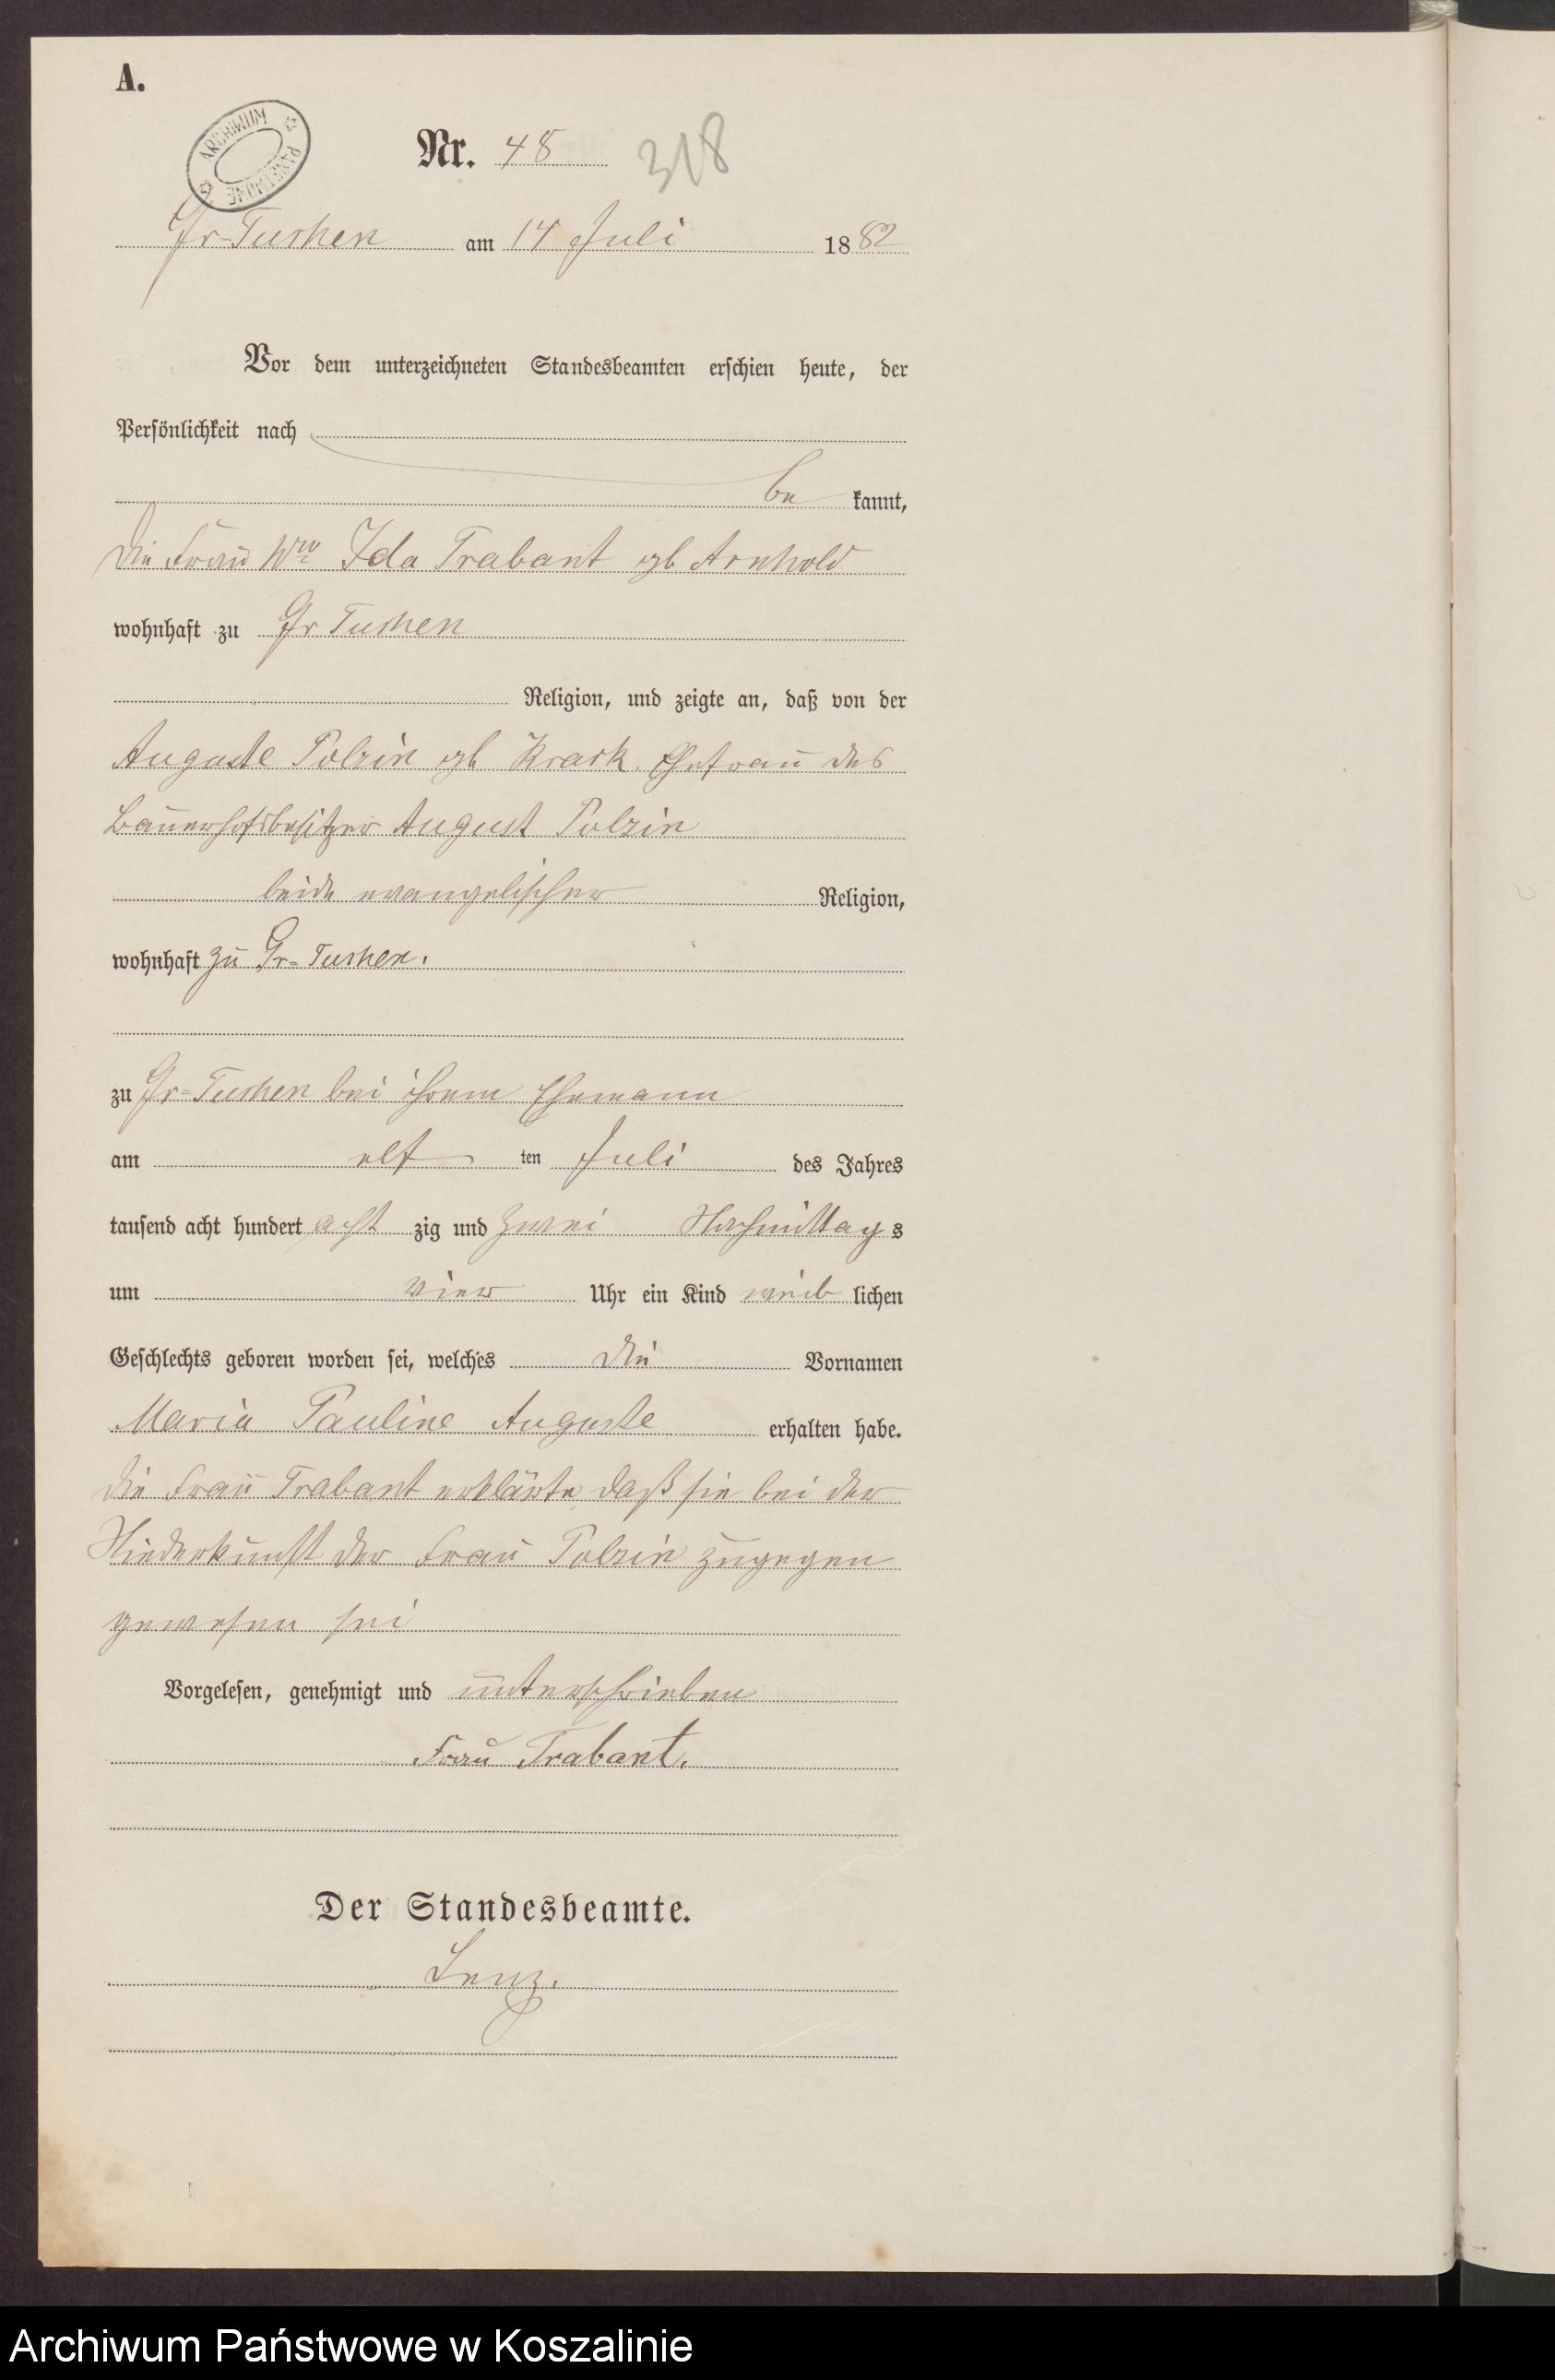 A.
ARCHIWUM PAŃSTWOWE
Nr. 48 318
Gr-Tuchen am 14 Juli 1882
Vor dem unterzeichneten Standesbeamten erschien heute, der
Persönlichkeit nach
be kannt,
die Frau Ww Ida Trabant gb Arnhold
wohnhaft zu Gr Tuchen
Religion, und zeigte an, daß von der
Auguste Polzin gb Krack Ehefrau des
Bauerhofsbesitzer August Polzin
beide evangelischer Religion,
wohnhaft zu Gr-Tuchen.
zu Gr-Tuchen bei ihrem Ehemann
am elf ten Juli des Jahres
tausend acht hundert acht zig und zwei Nachmittags
um vier Uhr ein Kind weib lichen
Geschlechts geboren worden sei, welches die Vornamen
Maria Pauline Auguste erhalten habe.
Die Frau Trabant erklärte, daß sie bei der
Niederkunft der Frau Polzin zugegen
gewesen sei
Vorgelesen, genehmigt und unterschrieben
Frau Trabant.
Der Standesbeamte.
Lenz.
Archiwum Państwowe w Koszalinie